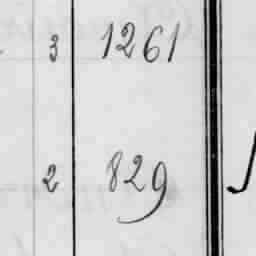 3 1261
2 829